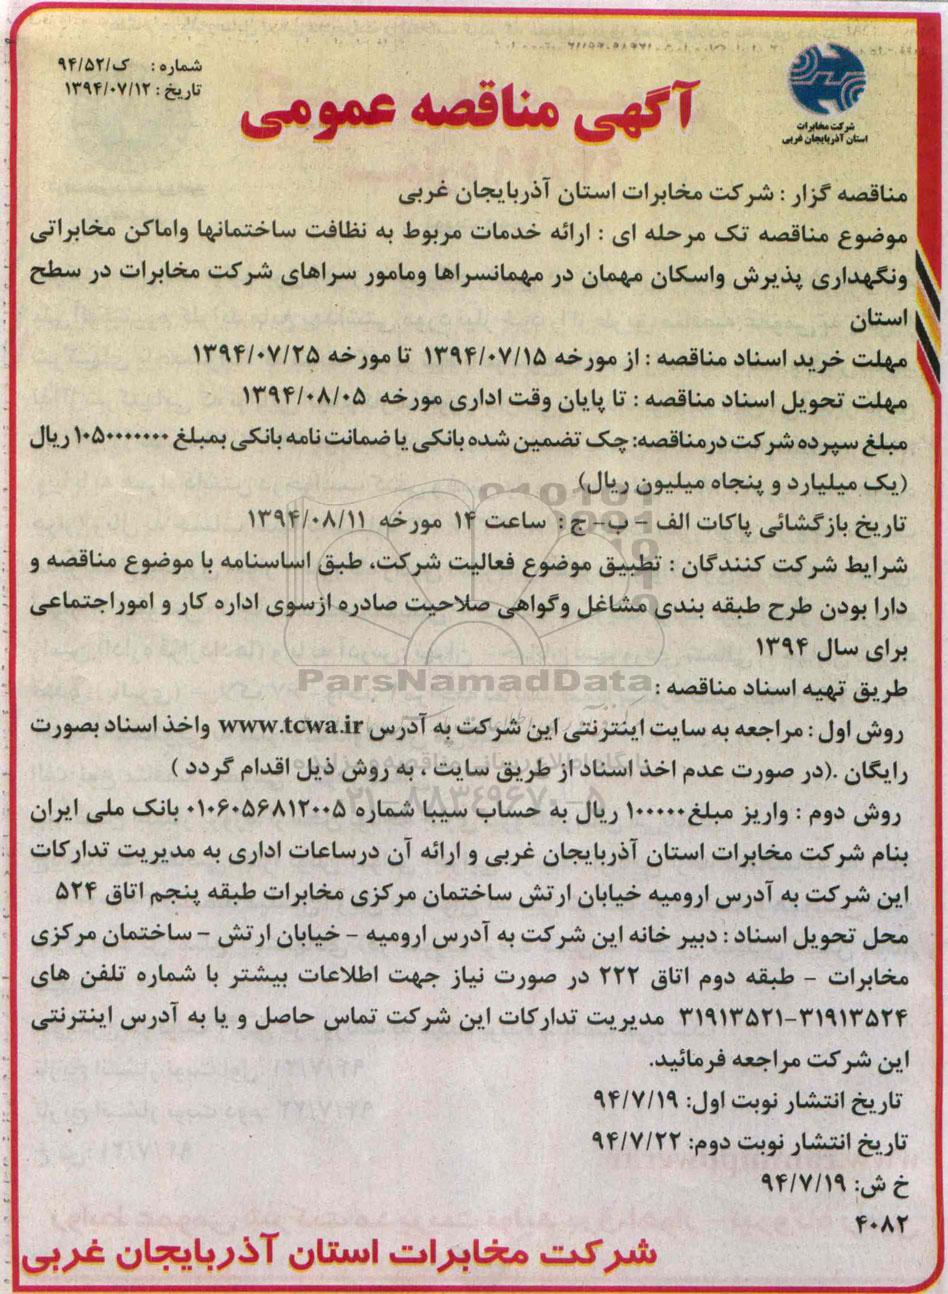 شماره : ک/۹۴/۵۲
تاریخ : ۱۳۹۴/۰۷/۱۲
آگهی مناقصه عمومی
شرکت مخابرات
استان آذربایجان غربی
مناقصه گزار : شرکت مخابرات استان آذربایجان غربی
موضوع مناقصه تک مرحله ای : ارائه خدمات مربوط به نظافت ساختمانها واماکن مخابراتی
ونگهداری پذیرش واسکان مهمان در مهمانسراها ومامور سراهای شرکت مخابرات در سطح
استان
مهلت خرید اسناد مناقصه : از مورخه ۱۳۹۴/۰۷/۱۵ تا مورخه ۱۳۹۴/۰۷/۲۵
مهلت تحویل اسناد مناقصه : تا پایان وقت اداری مورخه ۱۳۹۴/۰۸/۰۵
مبلغ سپرده شرکت درمناقصه: چک تضمین شده بانکی یا ضمانت نامه بانکی بمبلغ ۱۰۵۰۰۰۰۰۰۰ ریال
(یک میلیارد و پنجاه میلیون ریال)
تاریخ بازگشائی پاکات الف - ب- ج : ساعت ۱۴ مورخه ۱۳۹۴/۰۸/۱۱
شرایط شرکت کنندگان : تطبیق موضوع فعالیت شرکت، طبق اساسنامه با موضوع مناقصه و
دارا بودن طرح طبقه بندی مشاغل وگواهی صلاحیت صادره ازسوی اداره کار و اموراجتماعی
برای سال ۱۳۹۴
ParsNamadData
طریق تهیه اسناد مناقصه :
روش اول : مراجعه به سایت اینترنتی این شرکت به آدرس www.tcwa.ir واخذ اسناد بصورت
رایگان .(در صورت عدم اخذ اسناد از طریق سایت ، به روش ذیل اقدام گردد )
روش دوم : واریز مبلغ۱۰۰۰۰۰ ریال به حساب سیبا شماره ۰۱۰۶۰۵۶۸۱۲۰۰۵ بانک ملی ایران
بنام شرکت مخابرات استان آذربایجان غربی و ارائه آن درساعات اداری به مدیریت تدارکات
این شرکت به آدرس ارومیه خیابان ارتش ساختمان مرکزی مخابرات طبقه پنجم اتاق ۵۲۴
محل تحویل اسناد : دبیر خانه این شرکت به آدرس ارومیه - خیابان ارتش - ساختمان مرکزی
مخابرات - طبقه دوم اتاق ۲۲۲ در صورت نیاز جهت اطلاعات بیشتر با شماره تلفن های
۳۱۹۱۳۵۲۱-۳۱۹۱۳۵۲۴ مدیریت تدارکات این شرکت تماس حاصل و یا به آدرس اینترنتی
این شرکت مراجعه فرمائید.
تاریخ انتشار نوبت اول: ۹۴/۷/۱۹
تاریخ انتشار نوبت دوم: ۹۴/۷/۲۲
خ ش: ۹۴/۷/۱۹
۴۰۸۲
شرکت مخابرات استان آذربایجان غربی